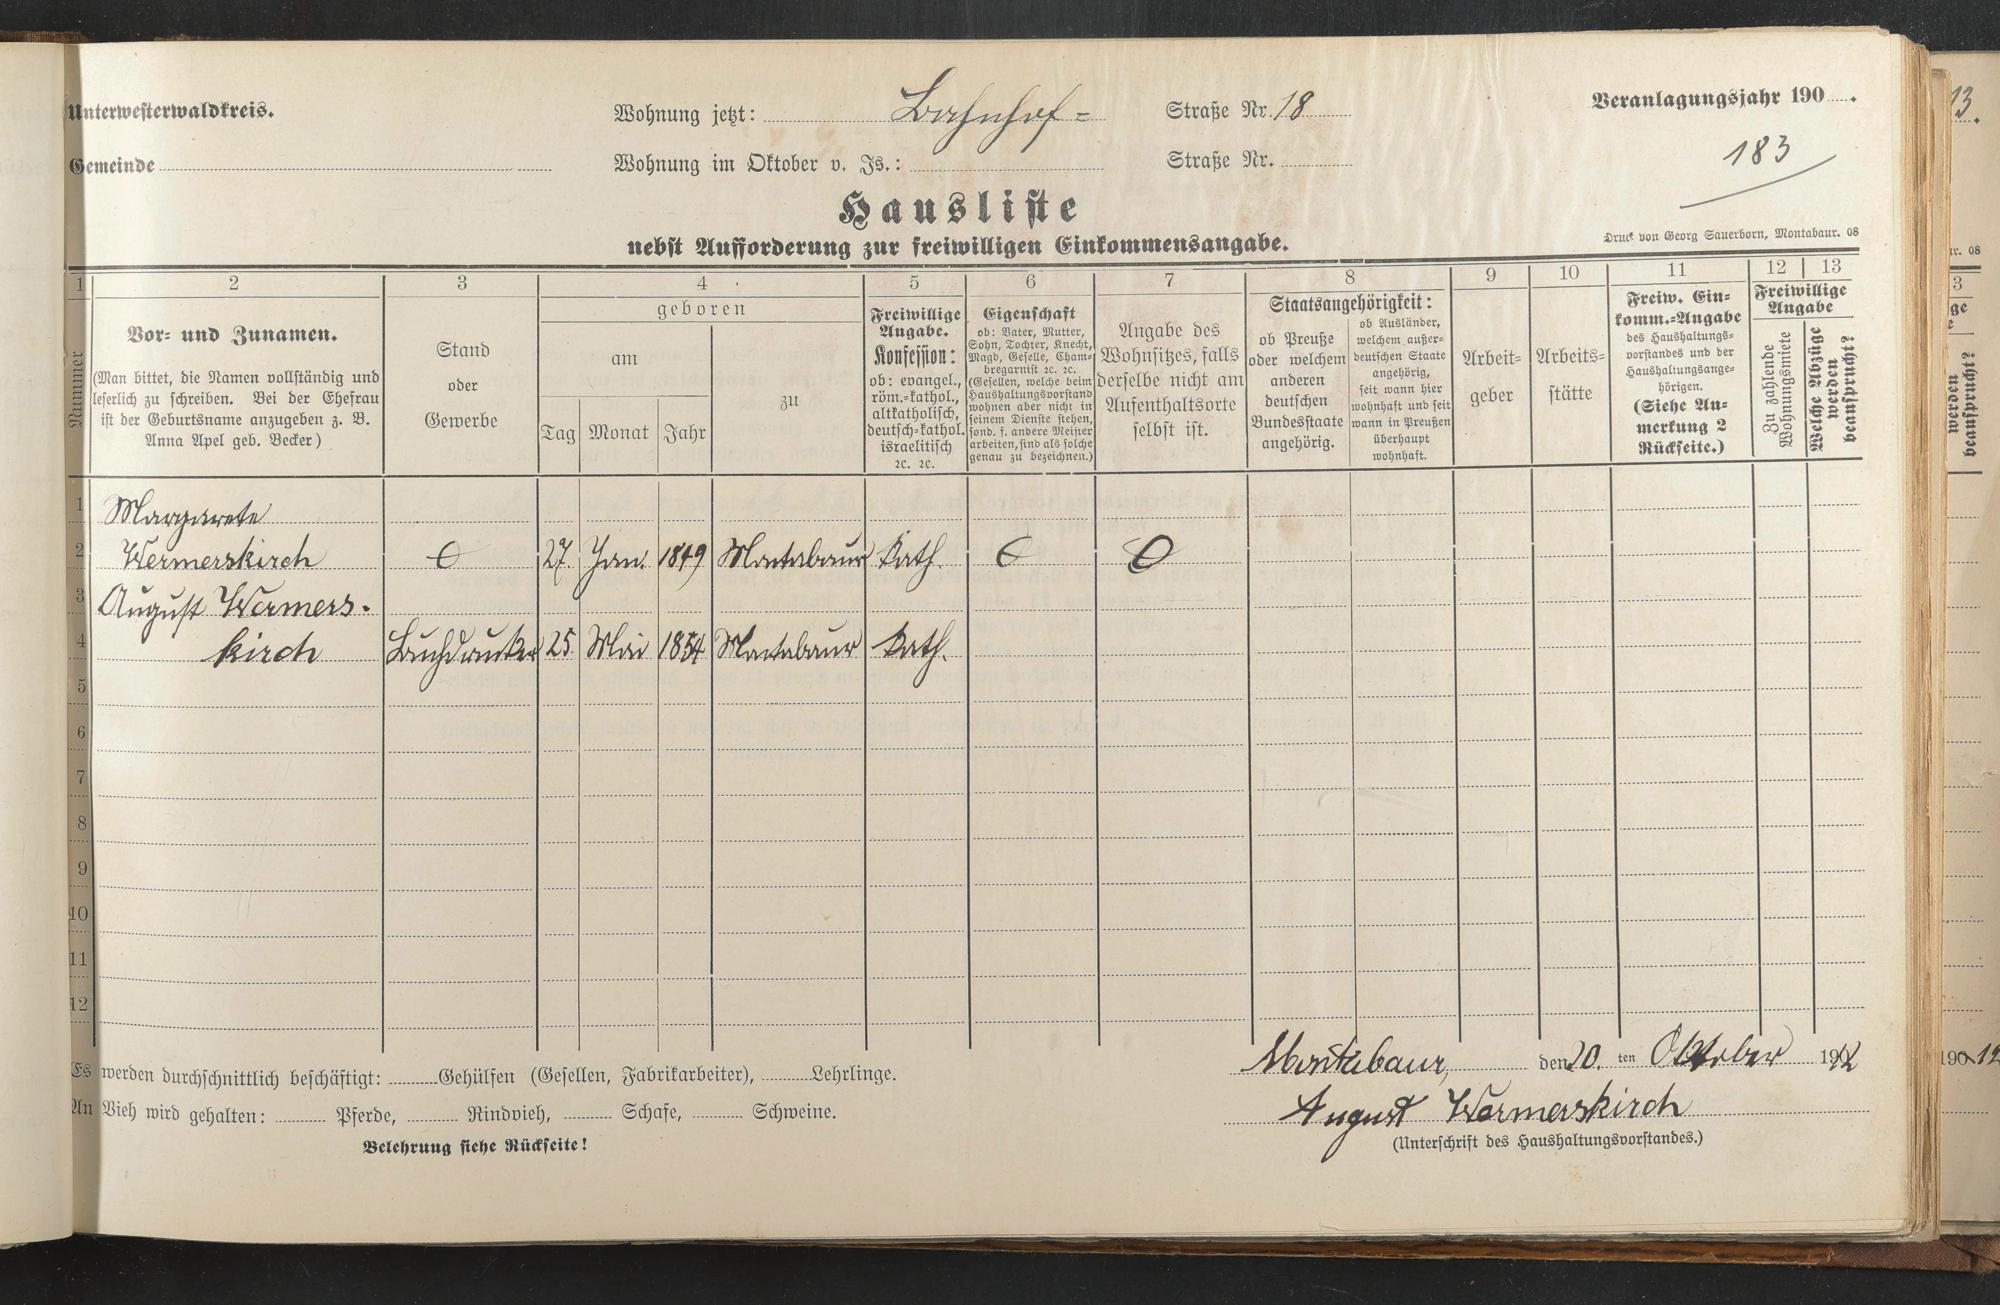 Unterwesterwaldkreis.
Wohnung jetzt: Bahnhof= Straße Nr. 18
Veranlagungsjahr 190 .
Gemeinde
Wohnung im Oktober v. Js.: Straße Nr.
183
Hausliste
nebst Aufforderung zur freiwilligen Einkommensangabe.
Druck von Georg Sauerborn, Montabaur. 08
1 2 3 4 5 6 7 8 9 10 11 12 13
Nummer
Vor- und Zunamen.
(Man bittet, die Namen vollständig und
leserlich zu schreiben. Bei der Ehefrau
ist der Geburtsname anzugeben z. B.
Anna Apel geb. Becker)
Stand
oder
Gewerbe
geboren
am
Tag Monat Jahr
zu
Freiwillige
Angabe.
Konfession:
ob: evangel.,
röm.=kathol.,
altkatholisch,
deutsch=kathol.
israelitisch
ꝛc. ꝛc.
Eigenschaft
ob: Vater, Mutter,
Sohn, Tochter, Knecht,
Magd, Geselle, Cham-
bregarnist ꝛc. ꝛc.
(Gesellen, welche beim
Haushaltungsvorstand
wohnen aber nicht in
seinem Dienste stehen,
sond. f. andere Meister
arbeiten, sind als solche
genau zu bezeichnen.)
Angabe des
Wohnsitzes, falls
derselbe nicht am
Aufenthaltsorte
selbst ist.
Staatsangehörigkeit:
ob Preuße
oder welchem
anderen
deutschen
Bundesstaate
angehörig.
ob Ausländer,
welchem außer-
deutschen Staate
angehörig,
seit wann hier
wohnhaft und seit
wann in Preußen
überhaupt
wohnhaft.
Arbeit=
geber
Arbeits=
stätte
Freiw. Ein-
komm.=Angabe
des Haushaltungs-
vorstandes und der
Haushaltungsange-
hörigen.
(Siehe An-
merkung 2
Rückseite.)
Freiwillige
Angabe
Zu zahlende
Wohnungsmiete
Welche Abzüge
werden
beansprucht?
1 Margarete
2 Wermerskirch 0 27. Jan. 1849 Montabaur kath. 0 0
3 August Wermers-
4 kirch Buchdrucker 25. Mai 1854 Montabaur kath.
5
6
7
8
9
10
11
12
Es werden durchschnittlich beschäftigt: Gehülfen (Gesellen, Fabrikarbeiter), Lehrlinge.
An Vieh wird gehalten: Pferde, Rindvieh, Schafe, Schweine.
Belehrung siehe Rückseite!
Montabaur, den 20. ten Oktober 1912
August Wermerskirch
(Unterschrift des Haushaltungsvorstandes.)
13.
ur. 08
3
ge
e
werden
beansprucht?
190 12